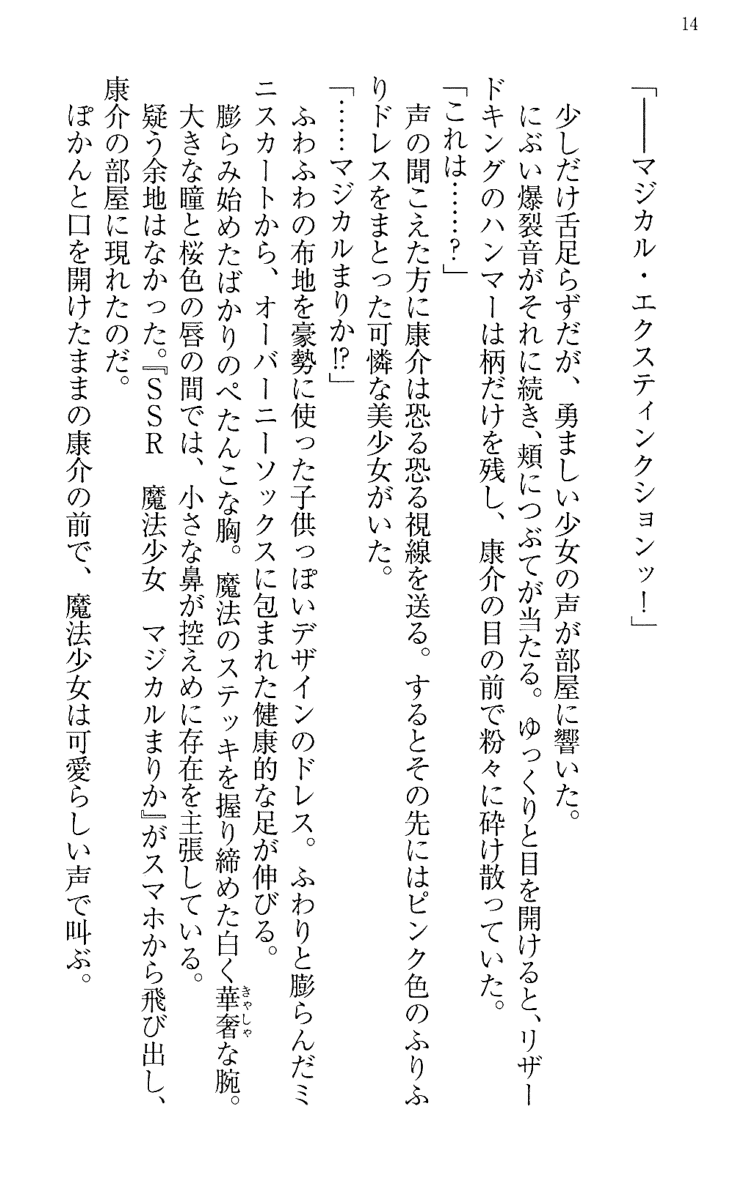 14
「――マジカル・エクスティンクションッ！」
少しだけ舌足らずだが、勇ましい少女の声が部屋に響いた。
にぶい爆裂音がそれに続き、頬につぶてが当たる。ゆっくりと目を開けると、リザー
ドキングのハンマーは柄だけを残し、康介の目の前で粉々に砕け散っていた。
「これは……？」
声の聞こえた方に康介は恐る恐る視線を送る。するとその先にはピンク色のふりふ
りドレスをまとった可憐な美少女がいた。
「……マジカルまりか!?」
ふわふわの布地を豪勢に使った子供っぽいデザインのドレス。ふわりと膨らんだミ
ニスカートから、オーバーニーソックスに包まれた健康的な足が伸びる。
膨らみ始めたばかりのぺたんこな胸。魔法のステッキを握り締めた白く華奢な腕。
きゃしゃ
大きな瞳と桜色の唇の間では、小さな鼻が控えめに存在を主張している。
疑う余地はなかった。『ＳＳＲ　魔法少女　マジカルまりか』がスマホから飛び出し、
康介の部屋に現れたのだ。
ぽかんと口を開けたままの康介の前で、魔法少女は可愛らしい声で叫ぶ。